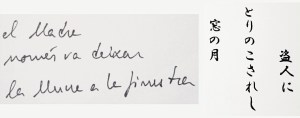 el lladre
només va deixar
la lluna a la finestra
盗人に
とりのこされし
窓の月